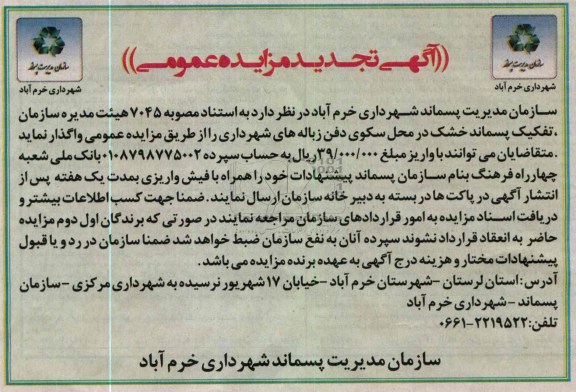 ((آگهی تجدید مزایده عمومی))
سازمان مدیریت پسماند
شهرداری خرم آباد
سازمان مدیریت پسماند
شهرداری خرم آباد
سازمان مدیریت پسماند شهرداری خرم آباد در نظر دارد به استناد مصوبه ۷۰۴۵ هیئت مدیره سازمان
،تفکیک پسماند خشک در محل سکوی دفن زباله های شهرداری را از طریق مزایده عمومی واگذار نماید
.متقاضایان می توانند با واریز مبلغ ۳۹/۰۰۰/۰۰۰ ریال به حساب سپرده ۰۱۰۸۷۹۸۷۷۵۰۰۲ بانک ملی شعبه
چهارراه فرهنگ بنام سازمان پسماند پیشنهادات خود را همراه با فیش واریزی بمدت یک هفته پس از
انتشار آگهی در پاکت ها در بسته به دبیر خانه سازمان ارسال نمایند .ضمنا جهت کسب اطلاعات بیشتر و
دریافت اسناد مزایده به امور قراردادهای سازمان مراجعه نمایند در صورتی که برندگان اول دوم مزایده
حاضر به انعقاد قرارداد نشوند سپرده آنان به نفع سازمان ضبط خواهد شد ضمنا سازمان در رد و یا قبول
پیشنهادات مختار و هزینه درج آگهی به عهده برنده مزایده می باشد.
آدرس :استان لرستان –شهرستان خرم آباد –خیابان ۱۷ شهریور نرسیده به شهرداری مرکزی –سازمان
پسماند –شهرداری خرم آباد
تلفن:۲۲۱۹۵۲۲-۰۶۶۱
سازمان مدیریت پسماند شهرداری خرم آباد